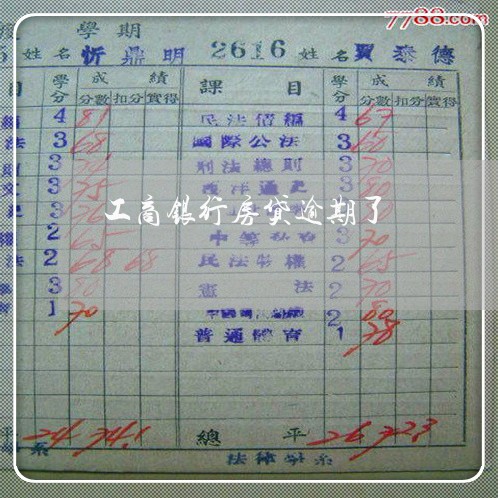 7788.com
學期
5 姓名 忻鼎明 2616 姓名 賈泰德
目 學分 成績 課目 學分 成績
分數 扣分 實得 分數 扣分 實得
4 81 民法債編 4 67
法 3 68 國際公法 3 60
3 刑法總則 3 70
文 3 75 西洋通史 3 80
3 76 3
工商银行房贷逾期了
2 65 3 70
法 2 68 68 民法物權 2 65
3 80 憲法 2 70
育 1 70 2 80
普通體育 1 78
平 24 74.1 總平 26 72.3
系 法律學系